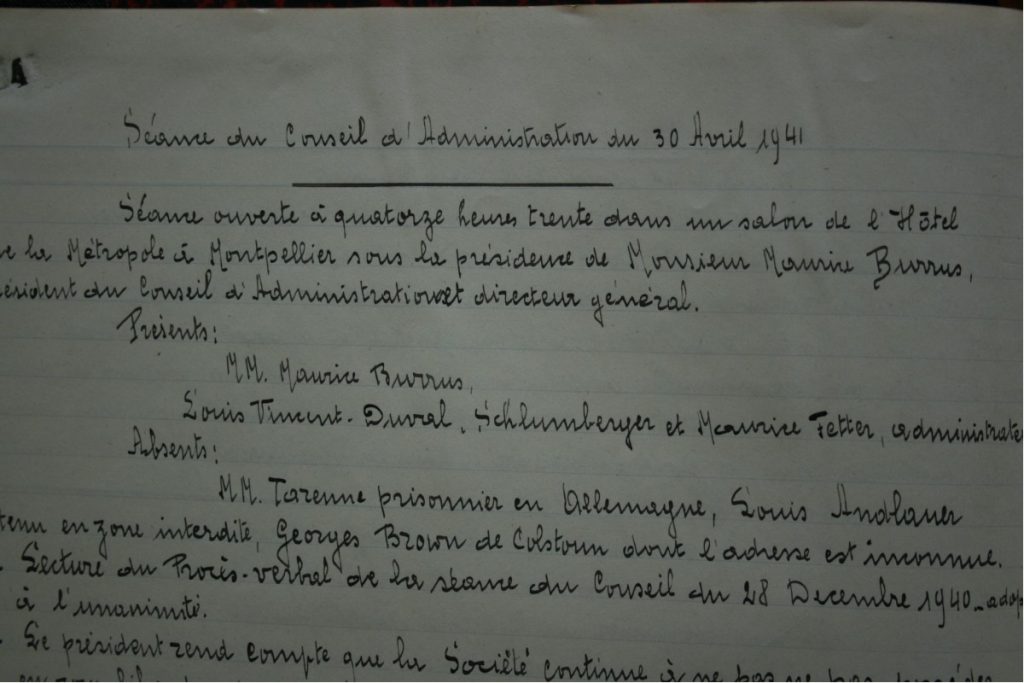 Séance du Conseil d'Administration du 30 Avril 1941
Séance ouverte à quatorze heures trente dans un salon de l'Hôtel
e la Métropole à Montpellier sous la présidence de Monsieur Maurice Burrus,
résident du Conseil d'Administration et directeur général.
Présents:
MM. Maurice Burrus,
Louis Vincent-Duval, Schlumberger et Maurice Fetter, administrate
Absents:
MM. Tarenne prisonnier en Allemagne, Louis Andlauer
tenu en zone interdite, Georges Brown de Colstoun dont l'adresse est inconnue.
Lecture du Procès-verbal de la séance du Conseil du 28 Decembre 1940 - adop
à l'unanimité.
Le président rend compte que la Société continue à ne pas ne pas